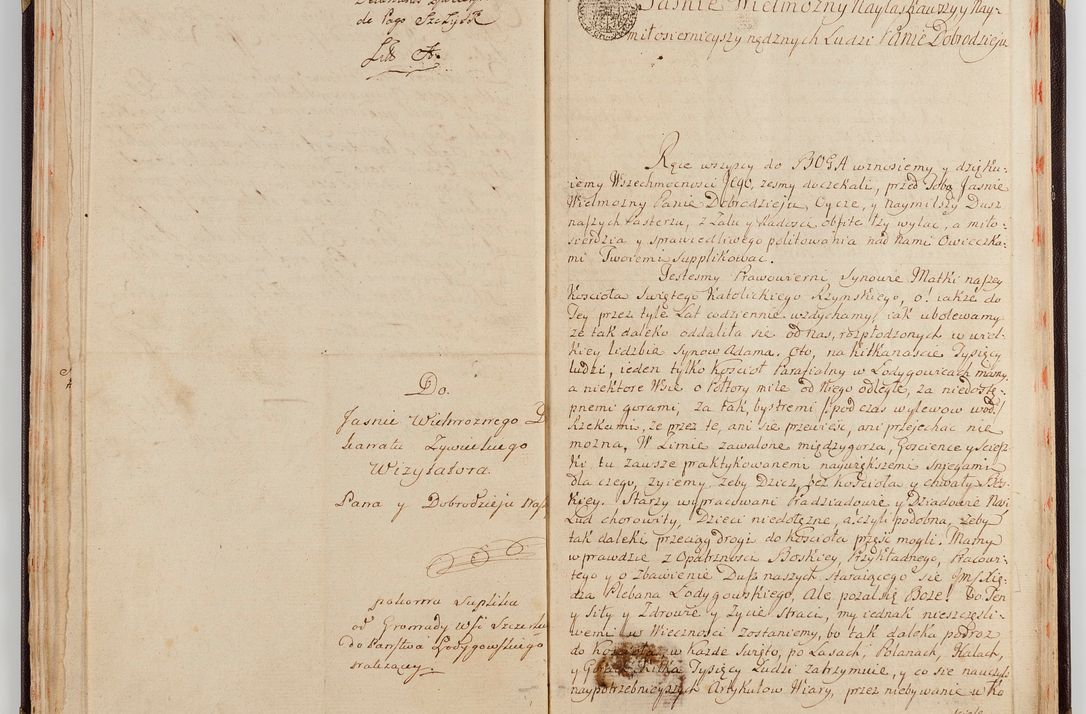 de Pago Szczyrk
Litt. A.
Do
Jasnie Wielmoznego D
kanatu Zywieckiego
Wizytatora.
Pana y Dobrodzieja
pokorna Supplika
od Gromady Wsi Szczerku
do Panstwa Lodygowskiego
nalizący.
Jasnie Wielmozny Naylaskawszy y Nay-
miłosiernieyszy nędznych Ludzi Panie Dobrodzieju
Ręce wszyscy do BOGA wznosiemy y dzięku-
iemy Wszechmocnosci Jego, zesmy doczekali, przed Tobą Jasnie
Wielmozny Panie Dobrodzieju, Oycze, y Naymilszy Dusz
naszych Pasterzu, z Zalu y Radosci obfite łzy wylać, a miło-
sierdzia y sprawiedliwego politowania nad Nami Owieczka-
mi Twoiemi supplikować.
Jestesmy Prawowierni Synowie Matki naszey
Koscioła Swiętego Katolickiego Rzymskiego, o! iakze do
Tey przez tyle Lat codziennie wzdychamy, iak ubolewamy
ze tak daleko oddaliła się od nas, rozpłodzonych w wiel-
kiey liczbie Synow Adama. Oto, na kilkanascie Tysięcy
ludzi, ieden tylko Koscioł Parafialny w Łodygowicach mamy
a niektore Wsie o Połtory mile od Niego odległe, za niedostę-
pnemi gorami, za tak bystremi /: pod czas wylewow wod :/
Rzekami, ze przez te, ani się przewiesc, ani przejechac nie
mozna, W Zimie zawalone międzygorza, Goscience y sciesz-
ki tu zawsze praktykowanemi największemi sniegami
dla czego, zyiemy zeby Dzicz, bez Koscioła y chwały
kiey. Starzy wypracowani Pradziadowie y Dziadowie Nasi
Lud chorowity, Dzieci niedołęzne, a czyli podobna, zeby
tak daleki przeciąg drogi do koscioła przejsć mogli. Mamy
wprawdzie z Opatrznosci Boskiey, Przykładnego, Pracowi-
tego y o Zbawienie Dusz naszych staraiącego się
dza Plebana Łodygowskiego, Ale pozal się Boze! bo Ten
y siły y Zdrowie y Zycie straci, my iednak nieszczęśli-
wemi w Wiecznosci zostaniemy, bo tak daleka podroz
do Koscioła, w kazde Swięto, po Lasach, Polanach, Halach,
y Gorach kilka Tysięcy Ludzi zatrzymuie, y co się nauczyli
naypotrzebnieyszych Artykułow Wiary, przez niebywanie w Ko